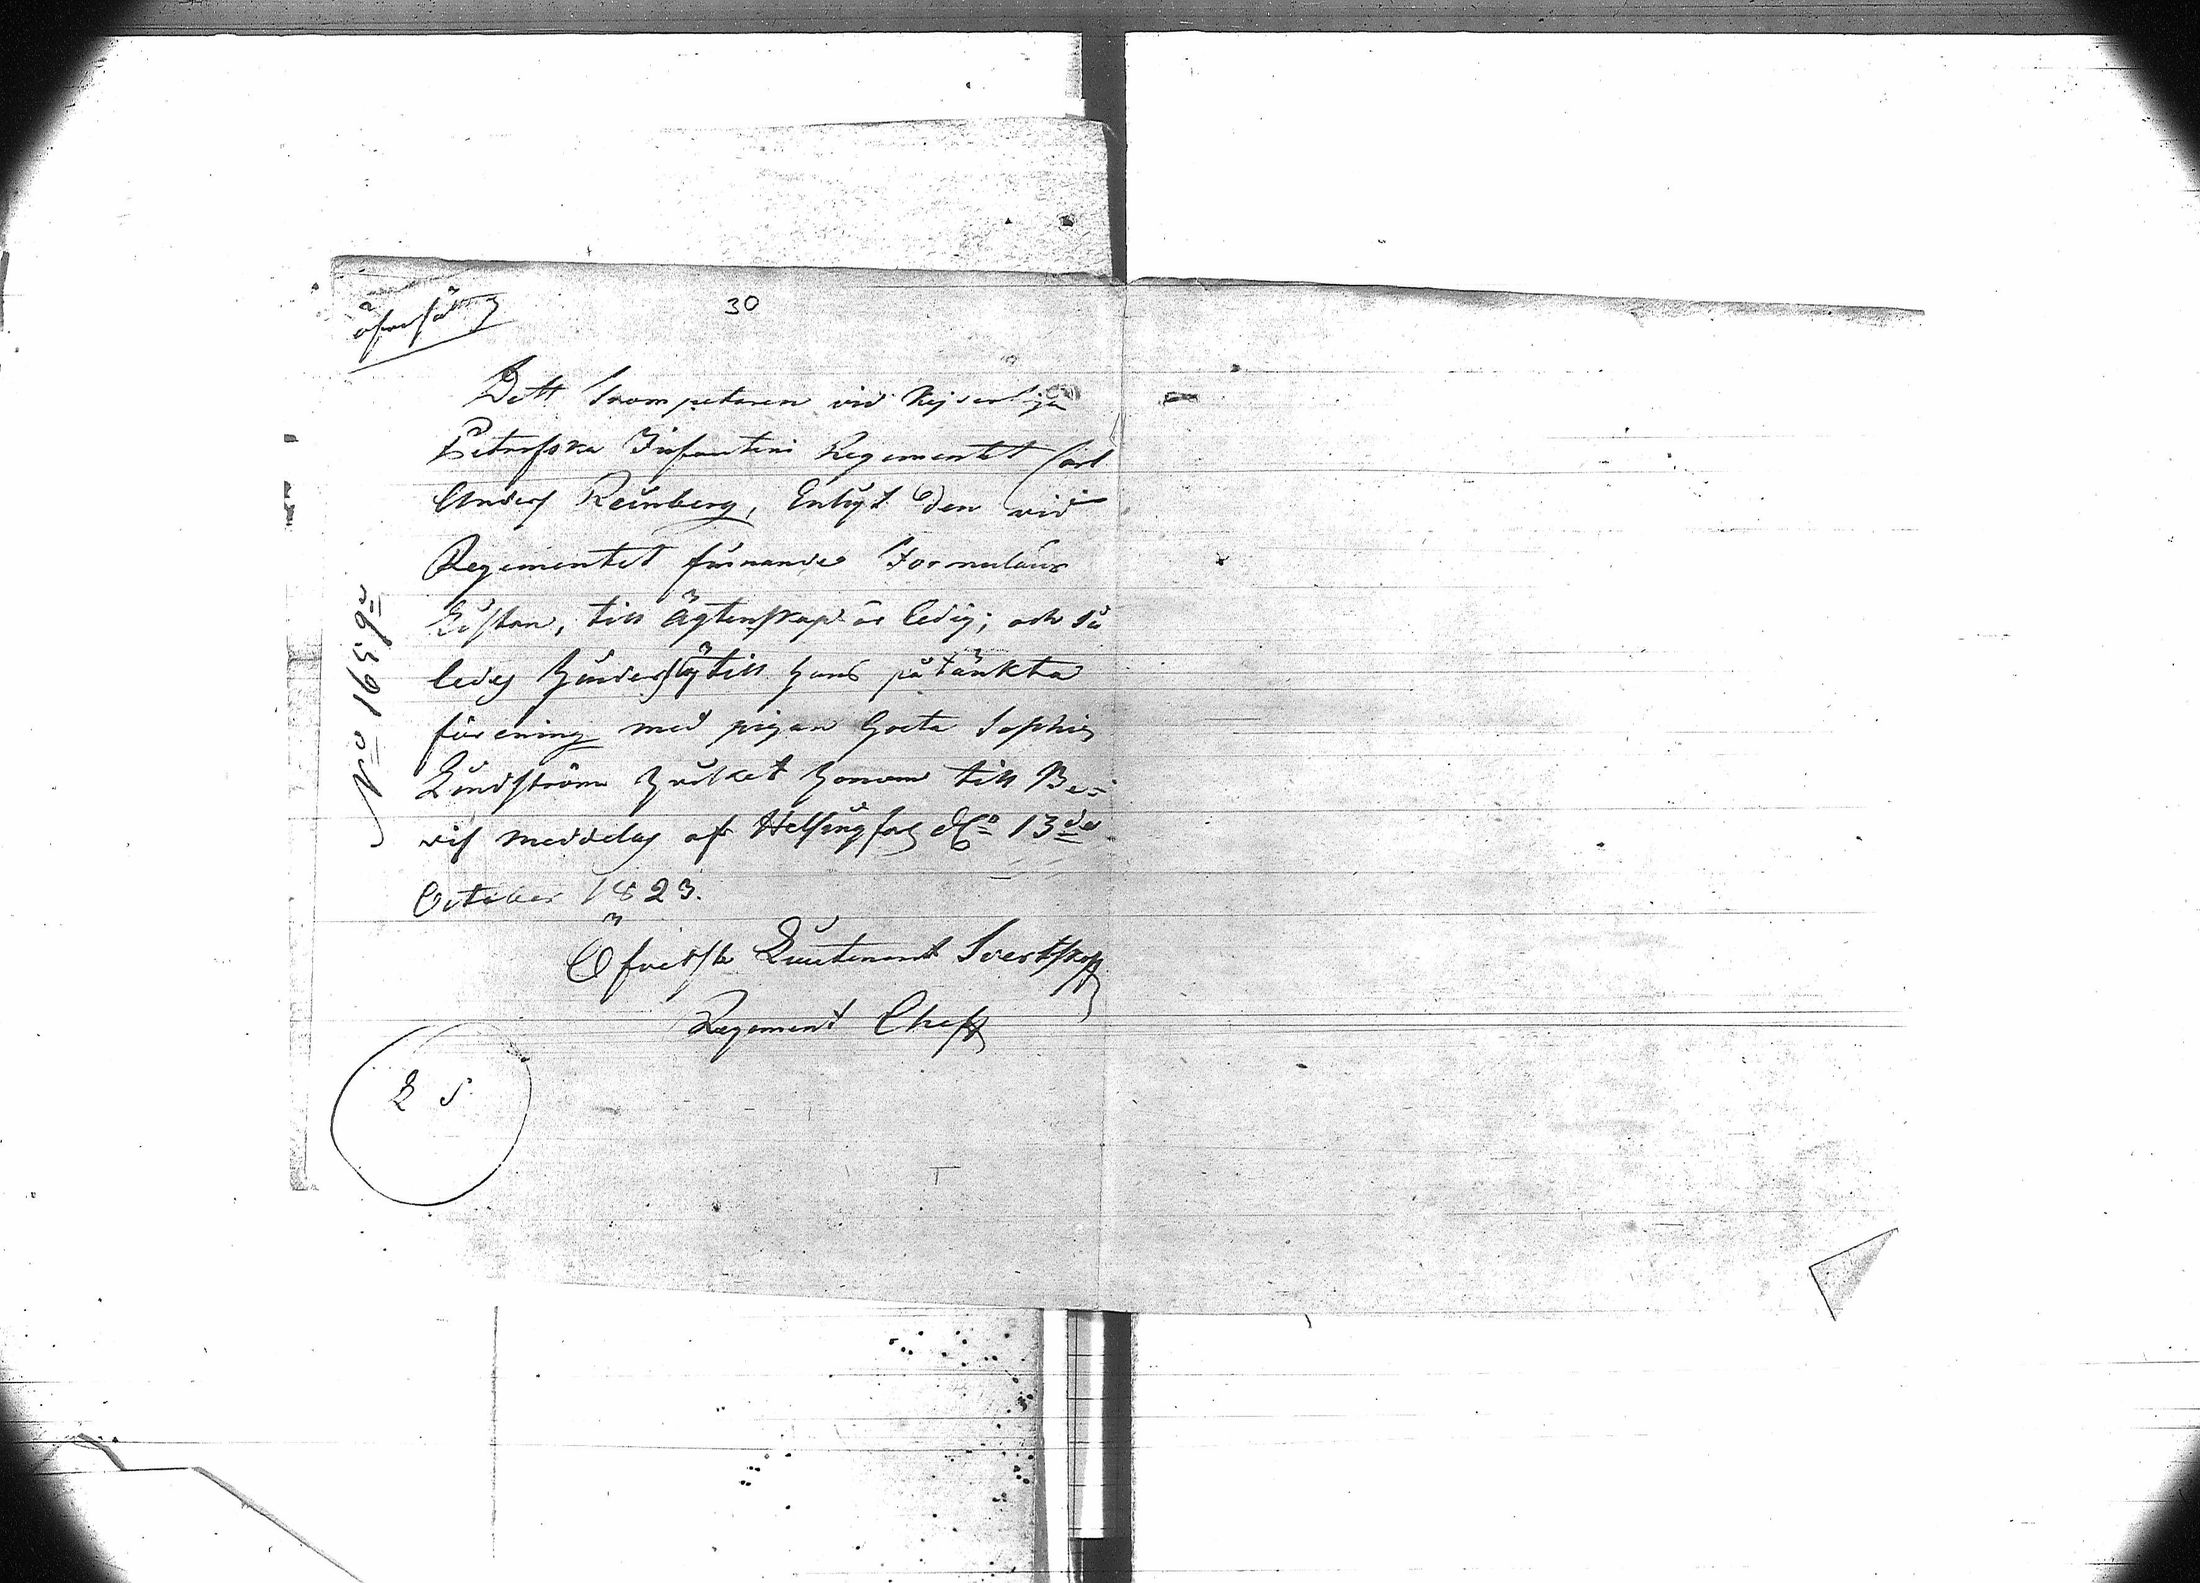 öfversättn
30
Dett Trompetaren vid Kejserliga
Petrofska Infanteri Regementet Carl
Anders Reinberg, Enligt den vid
Regementet förnande Formulair
Listan, till ägtenskap är ledig; och så
ledes hinderslög till hans påtänkta
förening med pigan Greta Sophia
Lindström hvilket honom till Be-
vis meddelas af Helsingfors d 13de
October 1823.
Öfverste Lieutenant
Regement Cheff
No 1659
L S